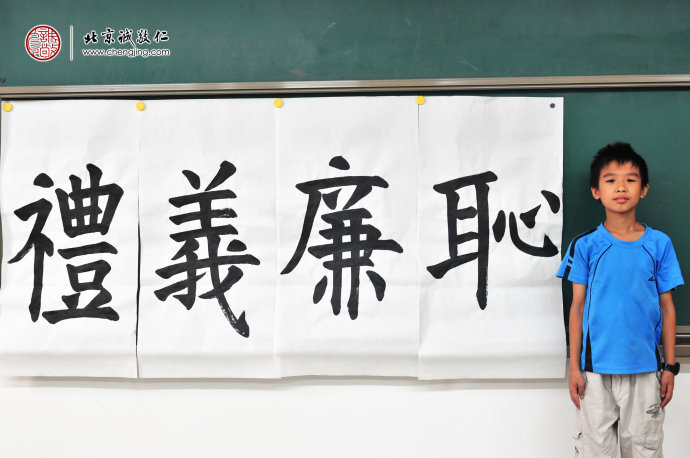 北京诚敬仁
www.chengjing.com
禮義廉恥